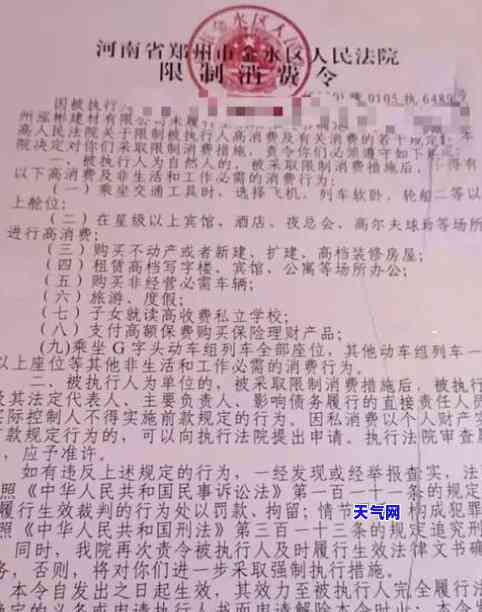 河南省郑州市金水区人民法院
限制消费令
0105 执 6489
因被执行
州泓彬建材有限公司未履行
高人民法院关于限制被执行人高消费及有关消费的若干规定
院决定对你们采取限制消费措施，责令你们必须遵守如下
一、被执行人为自然人的，被采取限制消费措施后，不得有
以下高消费及非生活和工作必需的消费行为：
（一）乘坐交通工具时，选择飞机、列车软卧、轮船二等以
上舱位；
（二）在星级以上宾馆、酒店、夜总会、高尔夫球场等场所
进行高消费；
（三）购买不动产或者新建、扩建、高档装修房屋；
（四）租赁高档写字楼、宾馆、公寓等场所办公；
（五）购买非经营必需车辆；
（六）旅游、度假；
（七）子女就读高收费私立学校；
（八）支付高额保费购买保险理财产品；
（九）乘坐 G 字头动车组列车全部座位，其他动车组列车一
以上座位等其他非生活和工作必需的消费行为。
二、被执行人为单位的，被采取限制消费措施后，被执行
及其法定代表人、主要负责人、影响债务履行的直接责任人员
实际控制人不得实施前款规定的行为。因私消费以个人财产实
前款规定行为的，可以向执行法院提出申请。执行法院审查属
，应予准许。
如有违反上述规定的行为，一经发现或经举报查实，法
照《中华人民共和国民事诉讼法》第一百一十一条的规定
履行生效裁判的行为处以罚款、拘留；情节 构成犯罪
照《中华人民共和国刑法》第三百一十三条的规定追究刑
同时，我院再次责令被执行人及时履行生效法律文书确
务，否则，将对你们进一步采取强制执行措施。
本令自发出之日起生效，其效力至被执行人完全履行法
定的义务或申请执行人书面申请解除
天气网